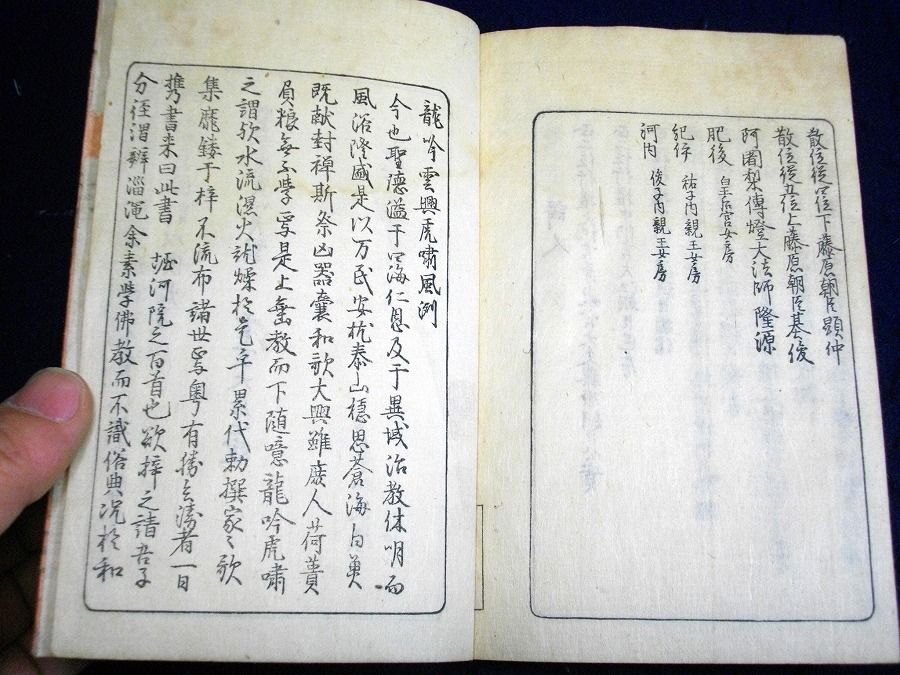 散位従四位下藤原朝臣顕仲
散位従五位上藤原朝臣基俊
阿闍梨傳燈大法師隆源
肥後 皇后宮女房
紀伊 祐子内親王女房
河内 俊子内親王女房
龍吟雲興虎嘯風冽
今也聖徳溢于四海仁恩及于異域治教休明而
風俗隆盛是以万民安枕泰山穏思蒼海白
既献封禅斯祭凶器嚢和歌大興雖廝人荷蕢
負粮無不学焉是上無教而下随噫龍吟虎嘯
之謂歟水流濕火就燥於乎累代勅撰家々歌
集靡鏤于梓不流布諸世焉粤有勝者一日
携書来曰此書 堀河院之百首也欲梓之請吾子
分徑渭辨淄澠余素学佛教而不識俗典况於和